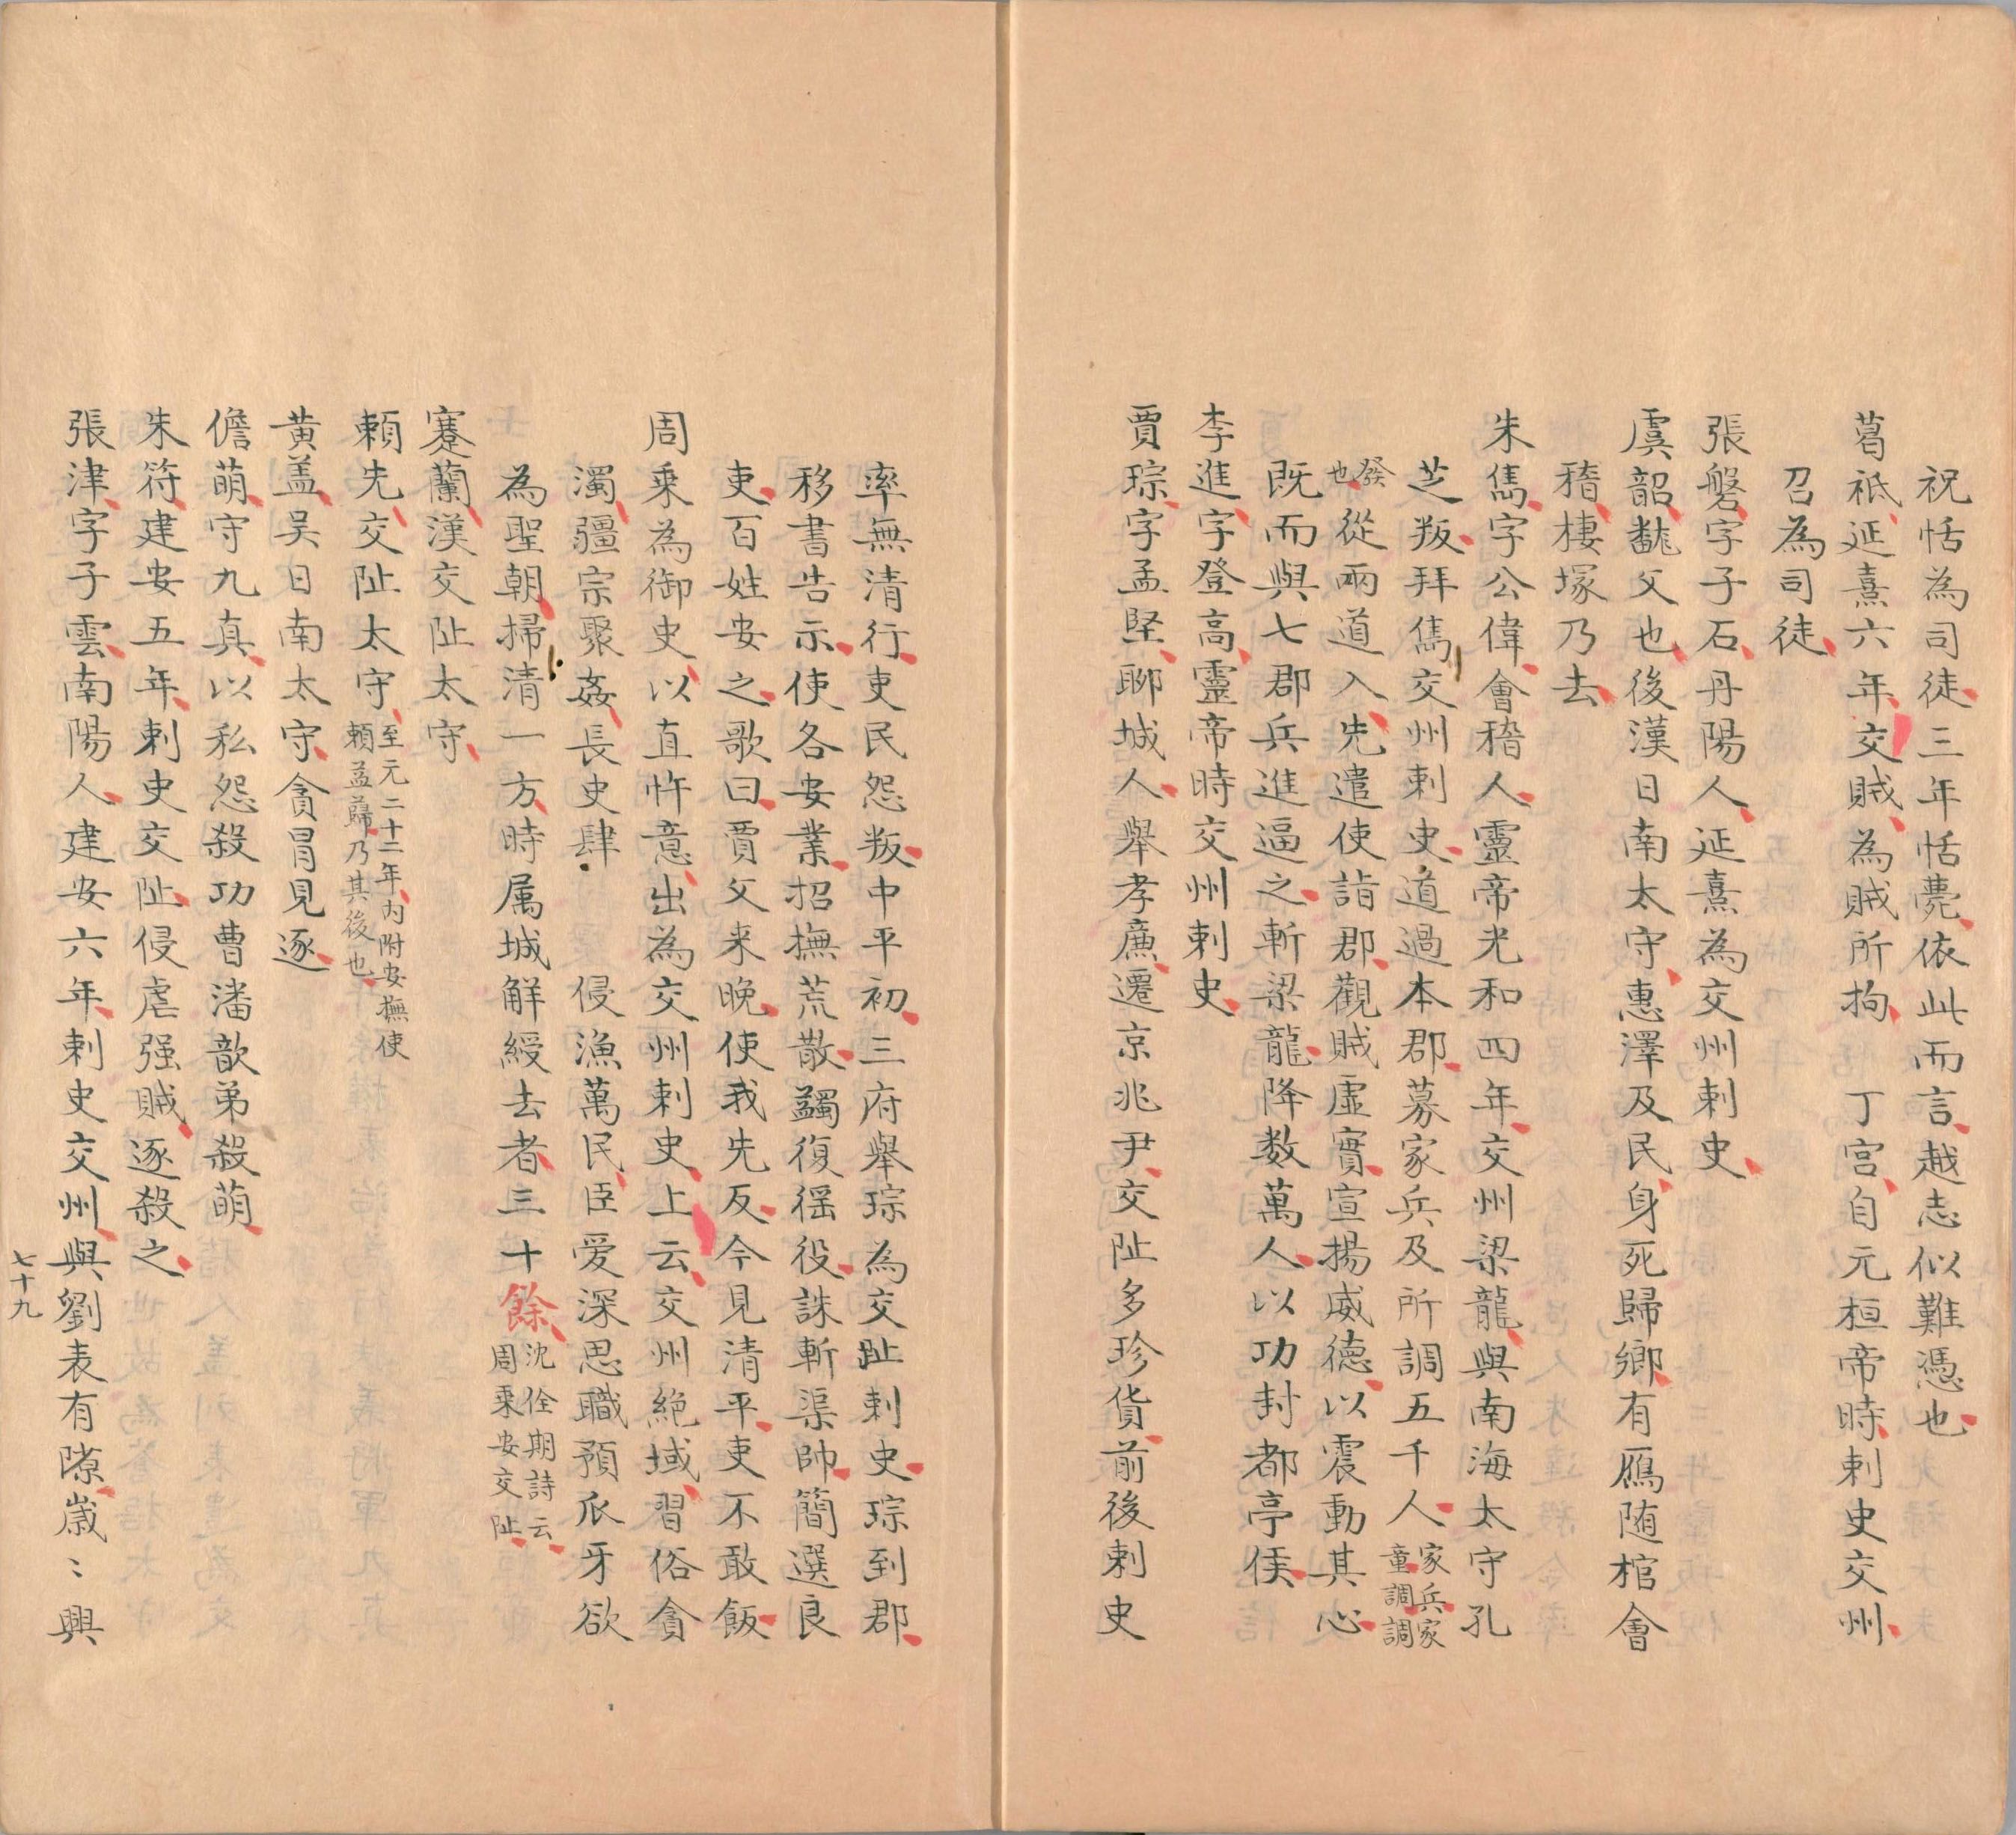 祝恬為司徒三年恬薨依此而言越志似難憑也
葛祗延熹六年交賊為賊所拘　丁宮自元桓帝時剌史交州
召為司徒
張磐字子石丹陽人延熹為交州剌史
虞韶飜父也後漢日南太守惠澤及民身死歸鄉有鴈随棺會
稽棲塚乃去
朱雋字公偉會稽人靈帝光和四年交州梁龍與南海太守孔
芝叛拜雋交州剌史道過本郡募家兵及所調五千人家兵家童調調
發也從兩道入先遣使詣郡觀賊虛實宣揚威德以震動其心
既而與七郡兵進逼之斬梁龍降数萬人以功封都亭侯
李進字登高靈帝時交州剌史
賈琮字孟堅聊城人舉孝廉遷京兆尹交阯多珍貨前後剌史
率無清行吏民怨叛中平初三府舉琮為交阯剌史琮到郡
移書告示使各安業招撫荒散蠲復徭役誅斬渠帥簡選良
吏百姓安之歌曰賈父来晚使我先反今見清平吏不敢飯
周乘為御史以直忤意出為交州剌史上云交州絶域習俗貪
濁疆宗聚姦長史肆　侵漁萬民臣爱深思職預爪牙欲
為聖朝掃清一方時属城解綬去者三十餘沈佺期詩云周乘安交阯
蹇蘭漢交阯太守
頼先交阯太守至元二十二年内附安撫使頼益歸乃其後也
黄盖吳日南太守貪冒見逐
儋萌守九真以私怨殺功曹潘歆弟殺萌
朱符建安五年剌史交阯侵虐强賊逐殺之
張津字子雲南陽人建安六年剌史交州與劉表有隙歲〻興
七十九